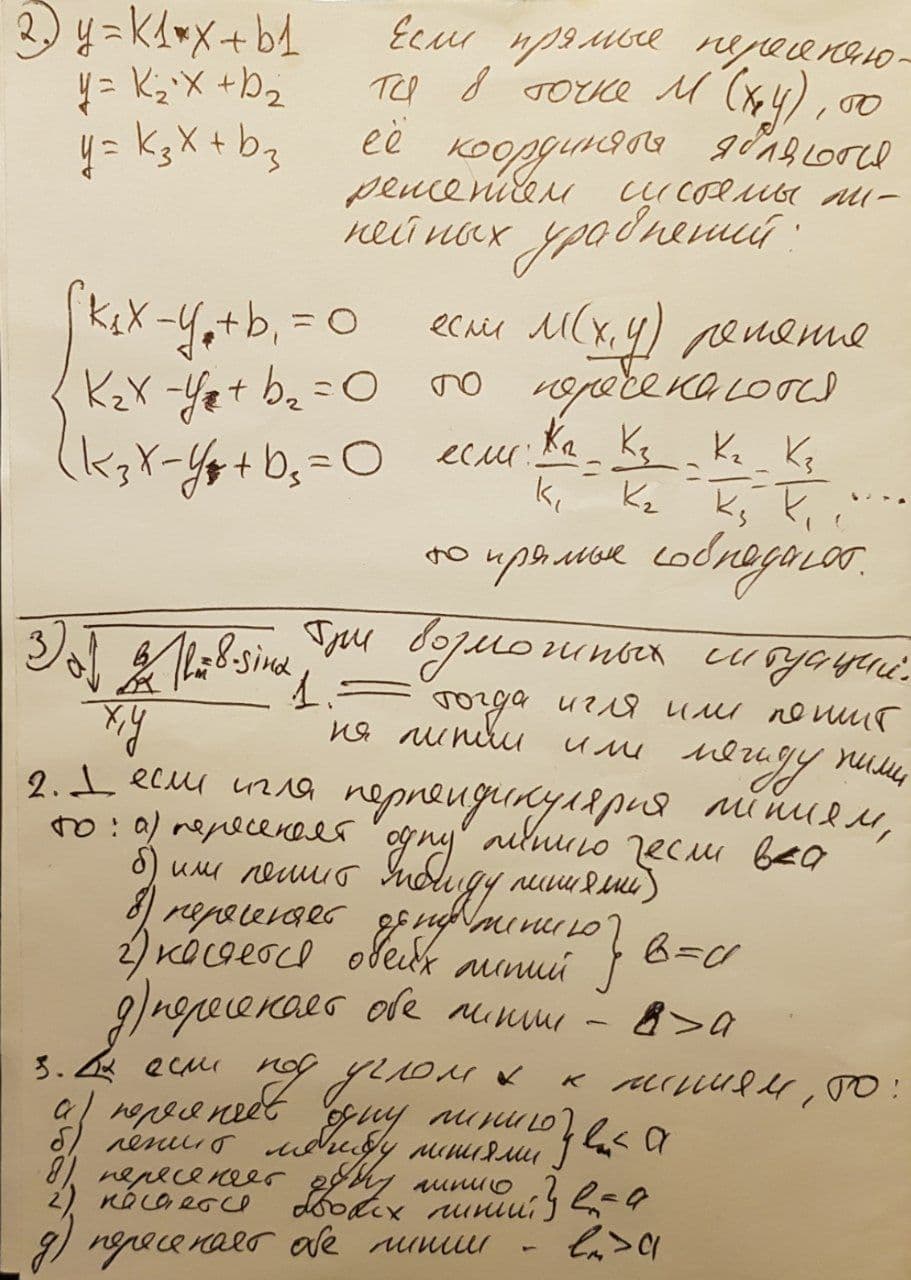 2.) y = K1·x + b1 Если прямые пересекаю-
y = K₂·x + b₂ тся в точке M (x,y), то
y = K₃x + b₃ её координаты являются
решением системы ли-
нейных уравнений:
K₁x - y + b₁ = 0 если M(x,y) решение
K₂x - y + b₂ = 0 то пересекаются
K₃x - y + b₃ = 0 если: K₂/K₁ = K₃/K₂ = K₂/K₃ = K₃/K₁, ....
то прямые совпадают.
3) a в α lₙ = в·sinα Три возможных ситуаций.
x,y 1. = тогда игла или лежит
на линии или между ними
2. ⊥ если игла перпендикулярна линиям,
то: а) пересекает одну линию } если в<a
б) или лежит между линиями}
в) пересекает одну линию }
г) касается обеих линий } в=a
д) пересекает обе линии – в>a
3. α если под углом α к линиям, то:
а) пересекает одну линию }
б) лежит между линиями } lₙ< a
в) пересекает одну линию }
г) касается обоих линий} lₙ=a
д) пересекает обе линии – lₙ>a